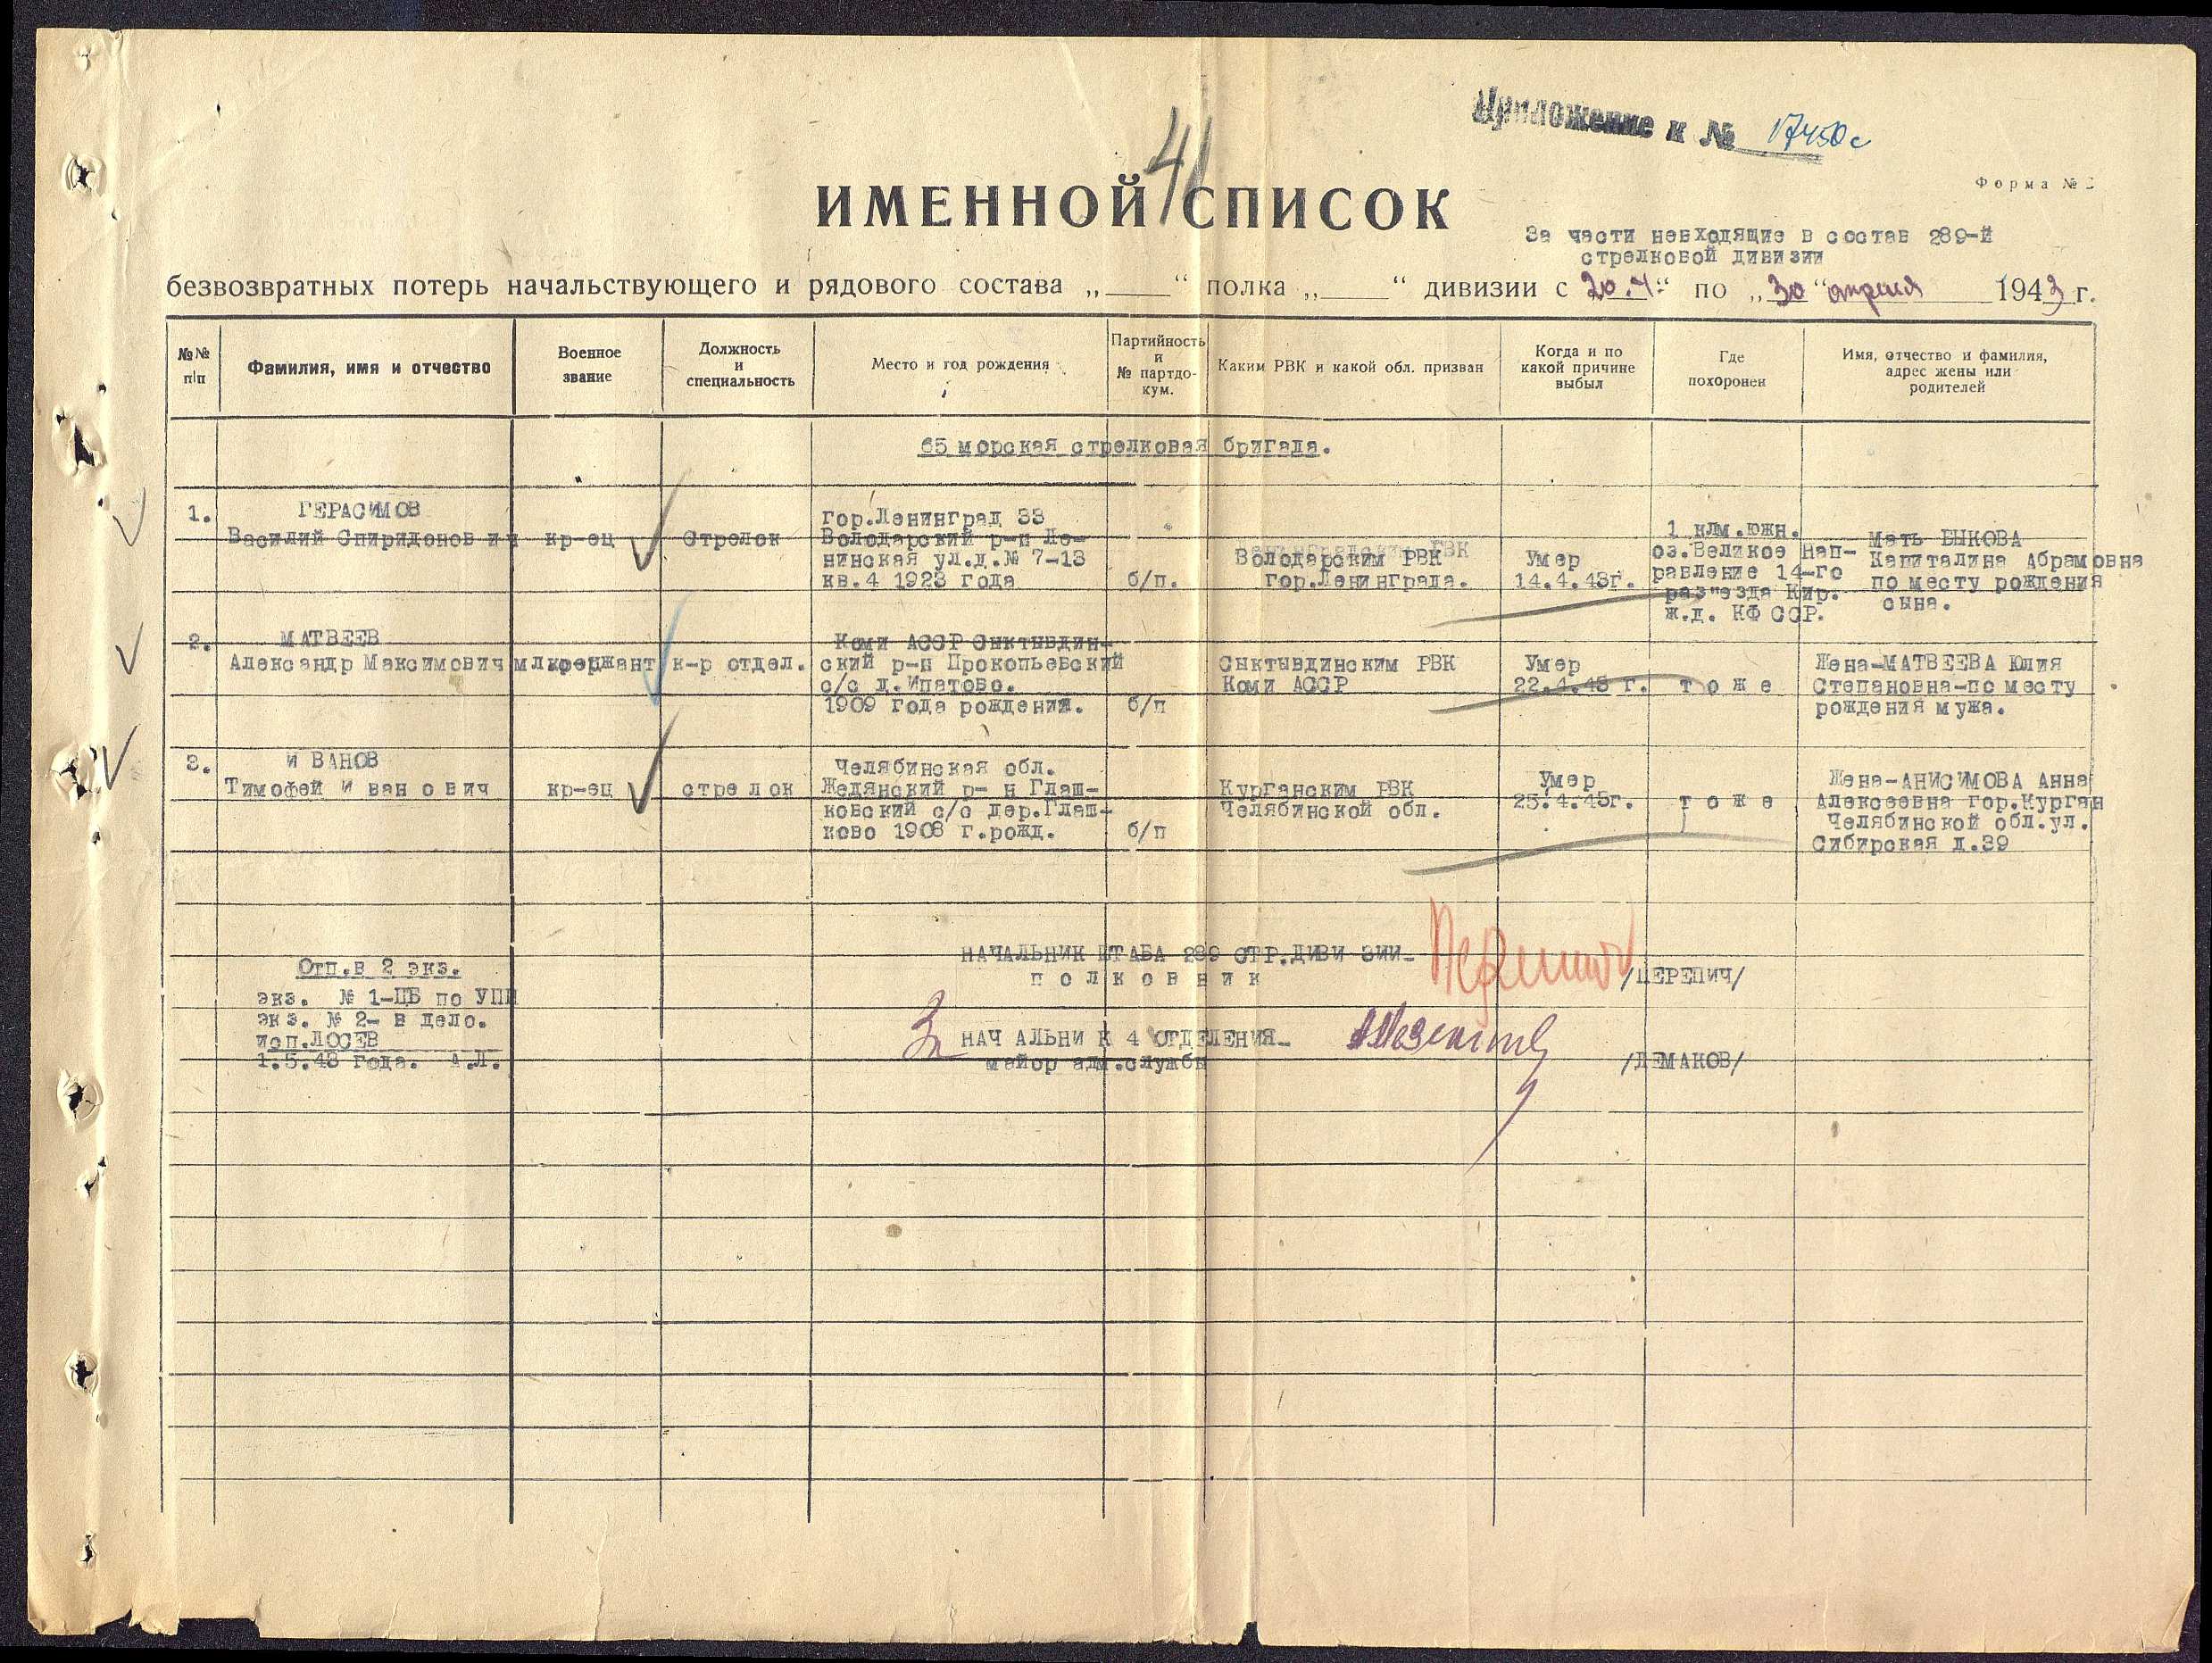 Приложение к № 17450с
41
Форма №
ИМЕННОЙ СПИСОК
За части невходящие в состав 289-й
стрелковой дивизии
безвозвратных потерь начальствующего и рядового состава „____“ полка „____“ дивизии с 20.4.“ по „30“ апреля 1943 г.
№№ п/п
Фамилия, имя и отчество
Военное звание
Должность и специальность
Место и год рождения
Партийность и № партдокум.
Каким РВК и какой обл. призван
Когда и по какой причине выбыл
Где похоронен
Имя, отчество и фамилия, адрес жены или родителей
65 морская стрелковая бригада.
1.
ГЕРАСИМОВ
Василий Спиридонович
кр-ец
Стрелок
гор.Ленинград 33
Володарский р-н Ле-
нинская ул.д.№ 7-13
кв.4 1923 года
б/п.
Володарским РВК
гор.Ленинграда.
Умер
14.4.43г.
1 клм.южн.
оз.Великое нап-
равление 14-го
раз"езда Кир.
ж.д. КФ ССР.
Мать БЫКОВА
Капиталина Абрамовна
по месту рождения
сына.
2.
МАТВЕЕВ
Александр Максимович
мл.сержант
к-р отдел.
Коми АССР Сыктывдин-
ский р-н Прокопьевский
с/с д.Ипатово.
1909 года рождения.
б/п
Сыктывдинским РВК
Коми АССР
Умер
22.4.43 г.
т о ж е
Жена-МАТВЕЕВА Юлия
Степановна-по месту
рождения мужа.
3.
И ВАНОВ
Тимофей И ван о вич
кр-ец
стре л ок
Челябинская обл.
Жедянский р- н Глаш-
ковский с/с дер.Глаш-
ково 1908 г.рожд.
б/п
Курганским РВК
Челябинской обл.
Умер
25.4.43г.
т о ж е
Жена-АНИСИМОВА Анна
Алексеевна гор.Курган
Челябинской обл.ул.
Сибирская д.39
НАЧАЛЬНИК ШТАБА 289 СТР.ДИВИ ЗИИ-
п о л к о в н и к
/ЦЕРЕПИЧ/
За НАЧ АЛЬНИ К 4 ОТДЕЛЕНИЯ-
майор адм.службы
/ЛЕМАКОВ/
Отп.в 2 экз.
экз. № 1-ЦБ по УПП
экз. № 2- в дело.
исп.ЛОСЕВ
1.5.43 года. А.Л.